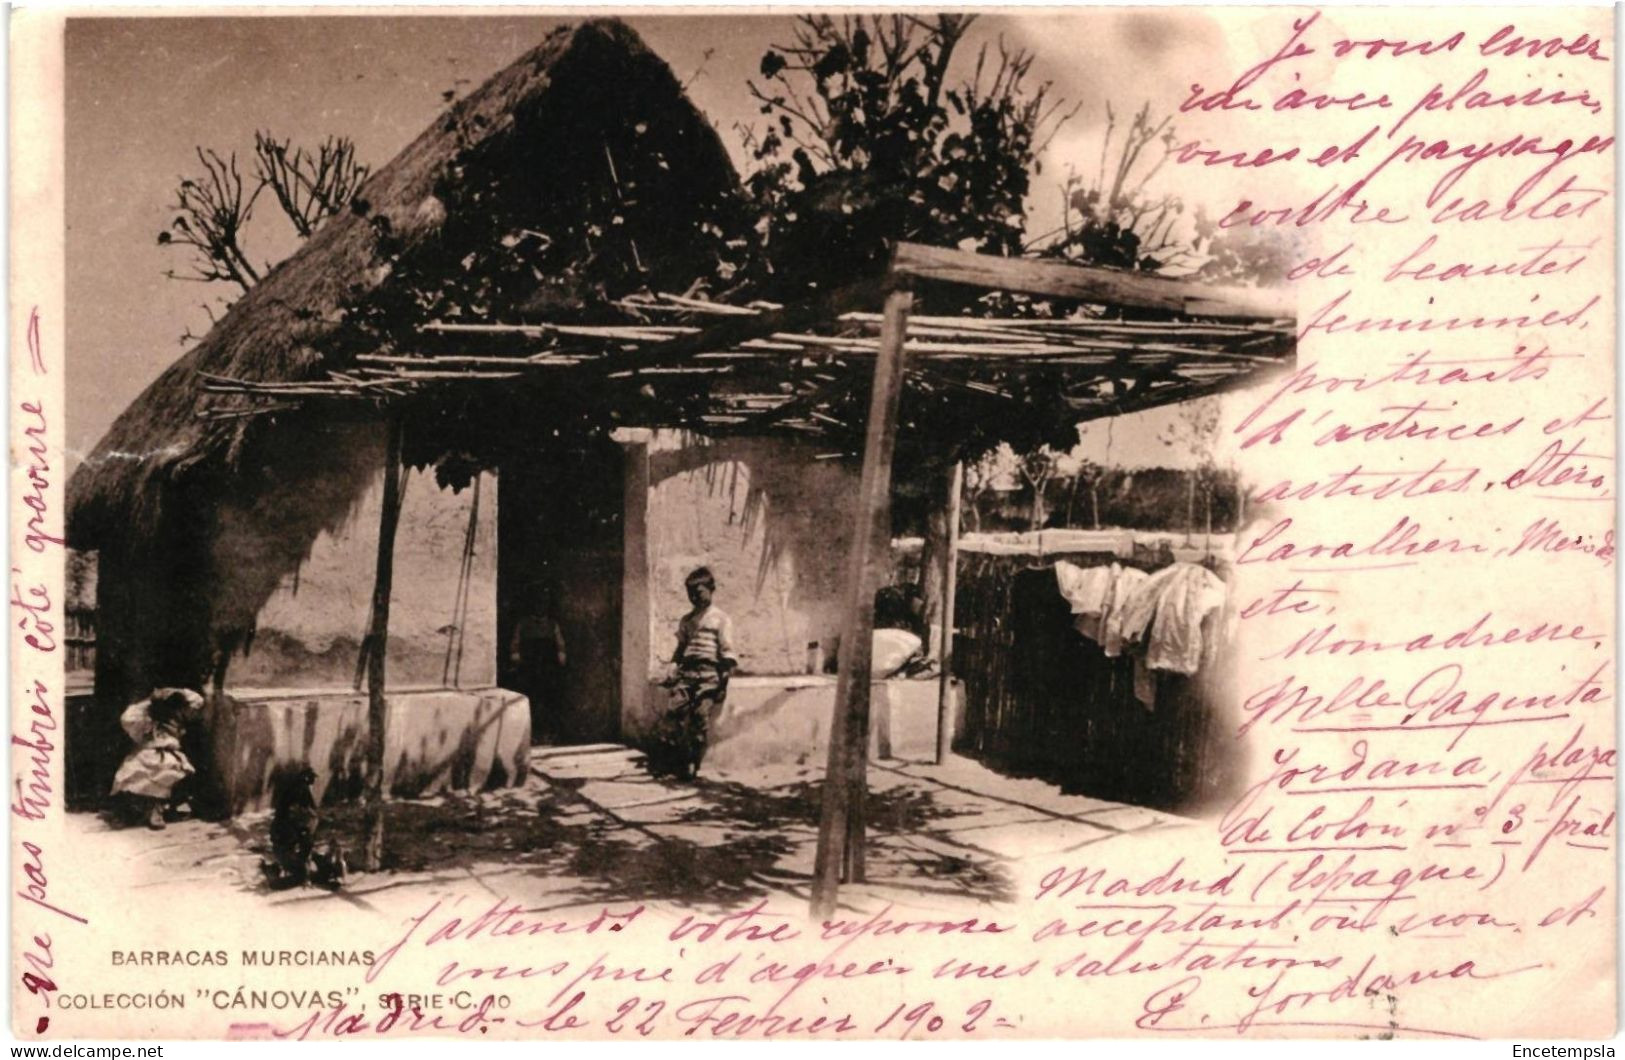 Je vous enver
rai avec plaisir,
vues et paysages
contre cartes
de beautés
feminines,
portraits
d'actrices et
artistes. Otero,
Cavallieri, Merode,
etc.
Mon adresse.
Mlle Paquita
Jordana, plaza
de Colón nº 3-pral
Madrid (Espagne)
J'attends votre reponse acceptant où non, et
vous prie d'agreer mes salutations
P. Jordana
Madrid.- le 22 Fevrier 1902-
Ne pas timbrer côté gravure =
BARRACAS MURCIANAS
COLECCIÓN "CÁNOVAS", SERIE C. 10
Encetempsla